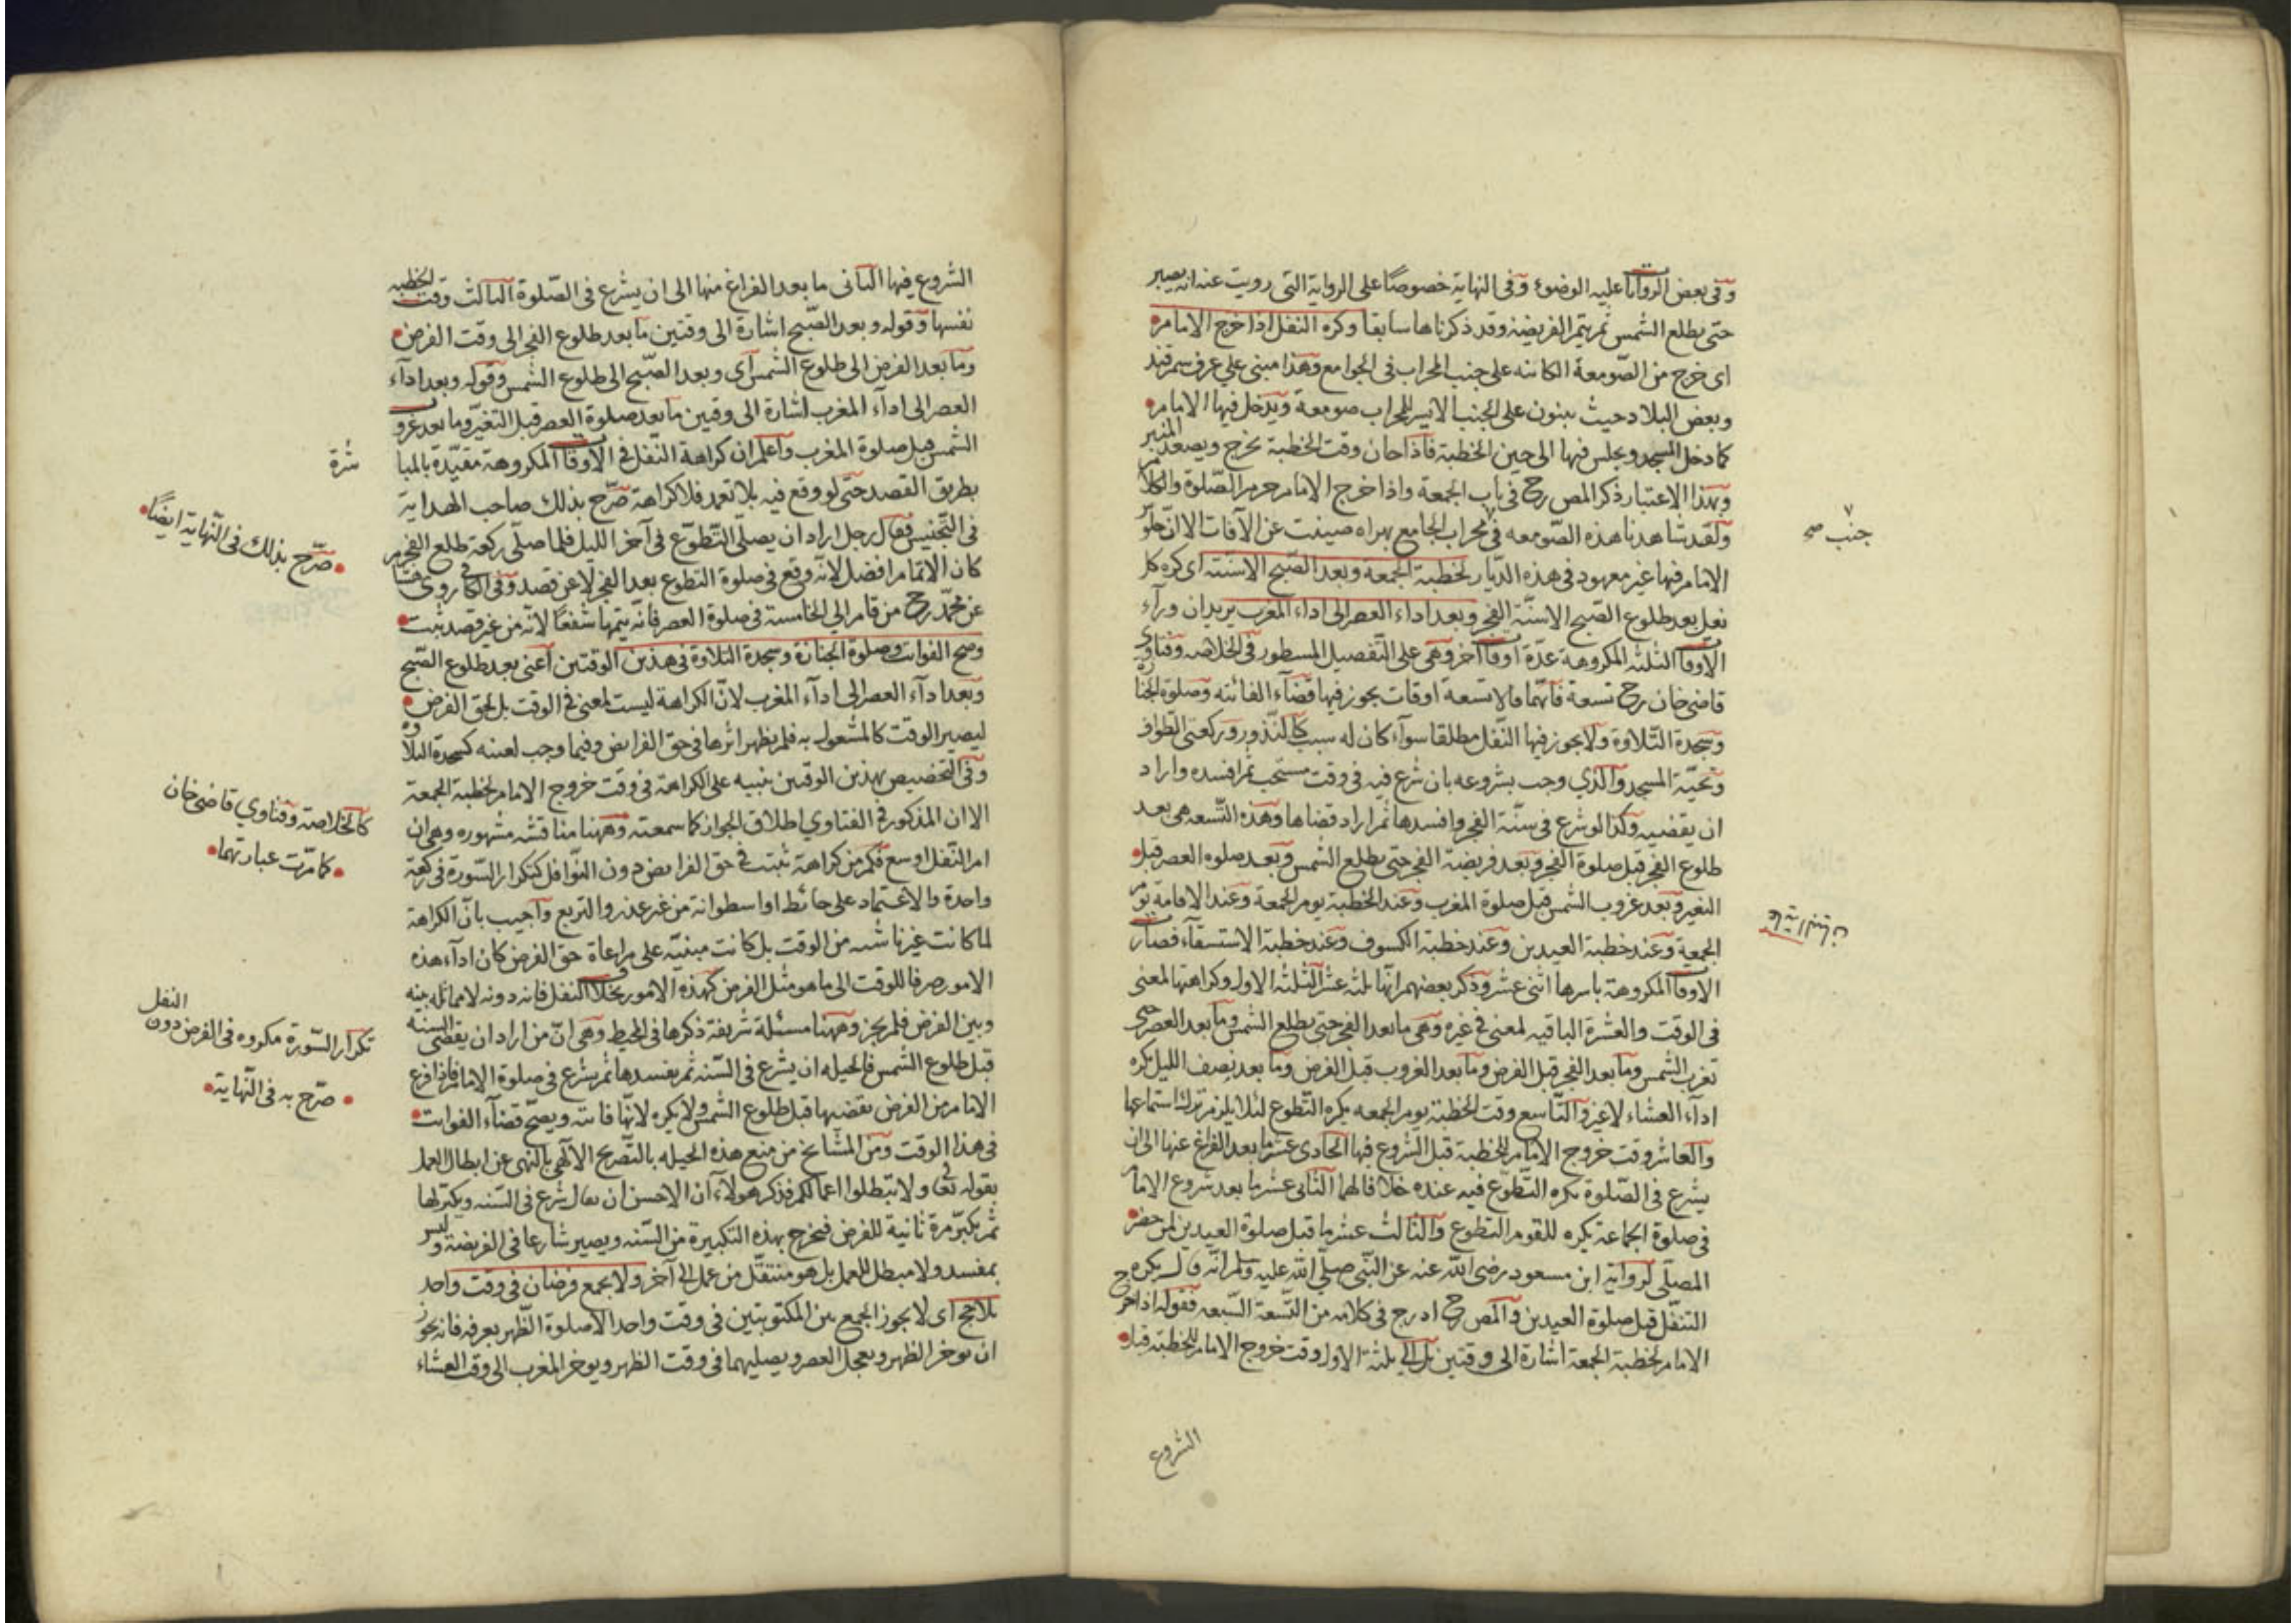 وفى بعض الروايات عليه الوضوء وفى النهاية خصوصًا على الرواية التى رويت عنه انه يصير
حتى يطلع الشمس ثم يتم الفريضة وقد ذكرناها سابقا وكره النفل اذا خرج الامام
اى خرج من الصومعة الكائنه على جنب المحراب فى الجوامع وهذا مبنى على عرف سمرقند
وبعض البلاد حيث يبنون على الجنب الايسر للمحراب صومعة ويدخل فيها الامام
كما دخل المسجد ويجلس فيها الى حين الخطبة فاذا حان وقت الخطبة يخرج ويصعد المنبر
وبهذا الاعتبار ذكر المص رح فى باب الجمعة واذا خرج الامام حرم الصلوة والكلام
ولقد شاهدنا هذه الصومعه فى محراب الجامع بهراه صينت عن الآفات الا ان حلو
الامام فيها غير معهود فى هذه الديار لخطبة الجمعة وبعد الصبح الا سنته اى كره كل
نفل بعد طلوع الصبح الا سنة الفجر وبعد اداء العصر الى اداء المغرب يريد ان ورآء
الاوقات الثلثه المكروهة عدة اوقات آخر وهى على التفصيل المسطور فى الخلاصه وفتاوى
قاضى خان رح تسعة فانهما قالا تسعة اوقات يجوز فيها قضآء الفائته وصلوة الجنازة
وسجدة التلاوة ولا يجوز فيها النفل مطلقا سوآء كان له سبب كالنذور وركعتى الطواف
وتحية المسجد والذي وجب بشروعه بان شرع فيه فى وقت مستحب ثم افسده واراد
ان يقضيه وكذا لو شرع فى سنة الفجر وافسدها ثم اراد قضاها وهذه التسعه هى بعد
طلوع الفجر قبل صلوة الفجر وبعد فريضة الفجر حتى يطلع الشمس وبعد صلوه العصر قبل
التغير وبعد غروب الشمس قبل صلوة المغرب وعند الخطبة يوم الجمعة وعند الاقامة يوم
الجمعة وعند خطبة العيدين وعند خطبة الكسوف وعند خطبة الاستسقآء فصارت
الاوقات المكروهة باسرها اثنى عشر وذكر بعضهم انها ثلثه عشر الثلثه الاول وكراهتها لمعنى
فى الوقت والعشرة الباقيه لمعنى فى غيره وهى ما بعد الفجر حتى يطلع الشمس وما بعد العصر حتى
تغرب الشمس وما بعد الفجر قبل الفرض وما بعد الغروب قبل الفرض وما بعد نصف الليل يكره
ادآء العشاء لا غير والتاسع وقت الخطبة يوم الجمعه يكره التطوع لئلا يلزم ترك استماعها
والعاشر وقت خروج الامام للخطبة قبل الشروع فيها الحادى عشر ما بعد الفراغ عنها الى ان
يشرع فى الصلوة يكره التطوع فيه عنده خلافا لهما الثانى عشر ما بعد شروع الامام
فى صلوة الجماعة يكره للقوم التطوع والثالث عشر ما قبل صلوة العيدين لمن حضر
المصلى لرواية ابن مسعود رضى الله عنه عن النبى صلى الله عليه وسلم انه قال يكره
التنفل قبل صلوة العيدين والمص رح ادرج فى كلامه من التسعة السبعه فقوله اذا خرج
الامام لخطبة الجمعة اشارة الى وقتين بل الى ثلثة الاول وقت خروج الامام للخطبة قبل
الشروع
جنب صح
الشروع فيها الثانى ما بعد الفراغ منها الى ان يشرع فى الصلوة الثالث وقت الخطبه
نفسها وقوله وبعد الصبح اشارة الى وقتين ما بعد طلوع الفجر الى وقت الفرض
وما بعد الفرض الى طلوع الشمس اى وبعد الصبح الى طلوع الشمس وقوله وبعد ادآء
العصر الى ادآء المغرب اشارة الى وقتين ما بعد صلوة العصر قبل التغير وما بعد غروب
الشمس قبل صلوة المغرب واعلم ان كراهة النفل فى الاوقات المكروهة مقيدة بالمبا
شرة
بطريق القصد حتى لو وقع فيه بلا تعمد فلا كراهة صرح بذلك صاحب الهداية
فى التجنيس فقال رجل اراد ان يصلى التطوع فى آخر الليل فلما صلى ركعة طلع الفجر
كان الاتمام افضل لانه وقع فى صلوة التطوع بعد الفجر لا عن قصد وفى الكافى روى هشام
عن محمد رح من قام الى الخامسة فى صلوة العصر فانه يتمها شفعًا لانه من غير قصد ثبت
وصح الفوائت وصلوة الجنازة وسجدة التلاوة فى هذين الوقتين اعنى بعد طلوع الصبح
وبعد ادآء العصر الى ادآء المغرب لان الكراهة ليست لمعنى فى الوقت بل لحق الفرض
ليصير الوقت كالمشغول به فلم يظهر اثرها فى حق الفرايض وفيما وجب لعينه كسجدة التلاوة
وفى التخصيص بهذين الوقتين تنبيه على الكراهة فى وقت خروج الامام لخطبة الجمعة
الا ان المذكور فى الفتاوي اطلاق الجواز كما سمعته وههنا مناقشه مشهوره وهى ان
امر النفل اوسع فكم من كراهة ثبت فى حق الفرايض دون النوافل كتكرار السورة فى ركعة
واحدة والاعتماد على حائط او اسطوانة من غير عذر والتربع واجيب بان الكراهة
لما كانت غير ناشئه من الوقت بل كانت مبنية على مراعاة حق الفرض كان ادآء هذه
الامور صرفا للوقت الى ما هو مثل الفرض كهذه الامور بخلاف النفل فانه دونه لا مماثله بينه
وبين الفرض فلم يجز وههنا مسئلة شريفة ذكرها فى المحيط وهى ان من اراد ان يقضى السنه
قبل طلوع الشمس فالحيله ان يشرع فى السنه ثم يفسدها ثم يشرع فى صلوة الامام فاذا فرغ
الامام من الفرض يقضيها قبل طلوع الشمس ولا يكره لانها فائته ويصح قضآء الفوائت
فى هذا الوقت ومن المشايخ من منع هذه الحيله بالتصريح الآلهى بالنهى عن ابطال العمل
بقوله تعالى ولا تبطلوا اعمالكم فذكر هولآء ان الاحسن ان يقال شرع فى السنه ويكبر لها
ثم يكبر مرة ثانية للفرض فيخرج بهذه التكبيرة من السنه ويصير شارعا فى الفريضة وليس
بمفسد ولا مبطل للعمل بل هو منتقل من عمل الى آخر ولا يجمع فرضان فى وقت واحد
بلا حج اى لا يجوز الجمع بين المكتوبتين فى وقت واحد الا صلوة الظهر بعرفه فانه يجوز
ان يوخر الظهر ويعجل العصر ويصليهما فى وقت الظهر ويوخر المغرب الى وقت العشاء
صرح بذلك فى النهاية ايضًا
كالخلاصة وفتاوي قاضى خان
كما مرت عبارتهما
تكرار السورة مكروه فى الفرض دون النفل
صرح به فى النهاية